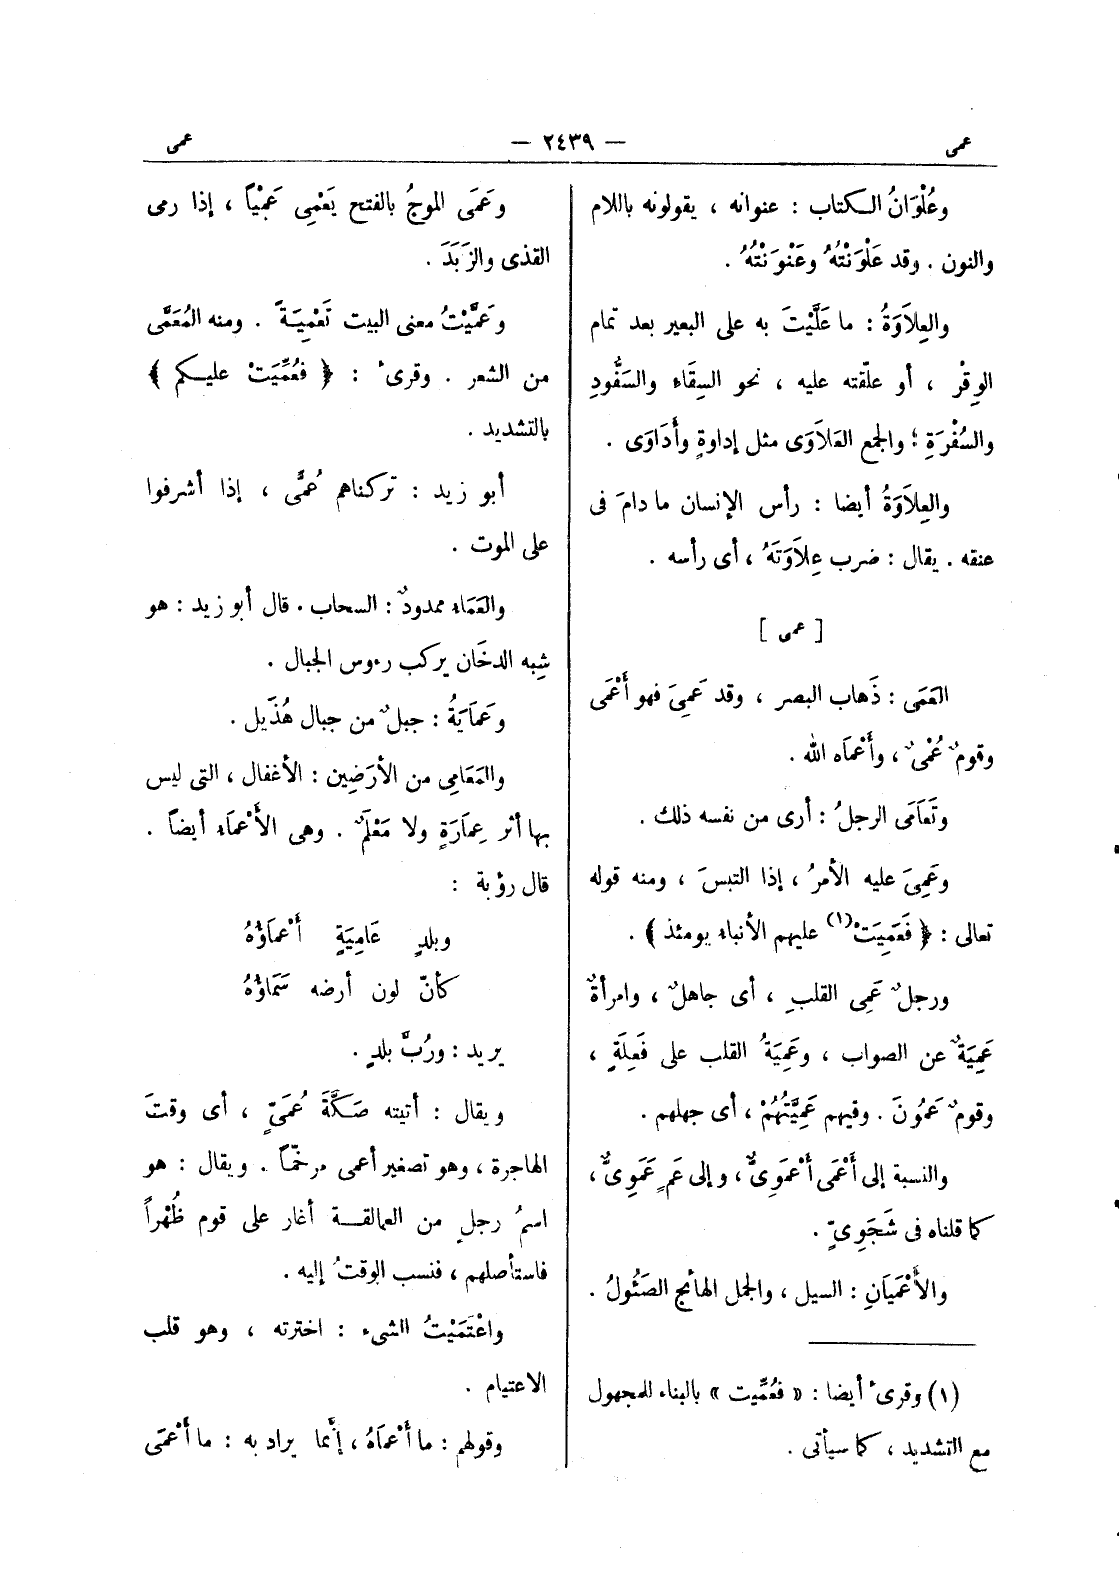 عمى — ٢٤٣٩ — عمى
وعُلْوَانُ الكتاب : عنوانه ، يقولونه باللام
والنون . وقد عَلْوَنْتُهُ وعَنْوَنْتُهُ .
والعِلاَوَةُ : ما عَلَّيْتَ به على البعير بعد تمام
الوِقْر ، أو علقته عليه ، نحو السِقَاء والسَفُّودِ
والسُفْرَةِ ؛ والجمع العَلاَوَى مثل إداوةٍ وأَدَاوَى .
والعِلاَوَةُ أيضا : رأس الإنسان ما دامَ فى
عنقه . يقال : ضرب عِلاَوَتَهُ ، أى رأسه .
[ عمى ]
العَمَى : ذَهاب البصر ، وقد عَمِىَ فهو أَعْمَى
وقومٌ عُمْىٌ ، وأَعْمَاه الله .
وتَعَامَى الرجلُ : أرى من نفسه ذلك .
وعَمِىَ عليه الأمرُ ، إذا التبسَ ، ومنه قوله
تعالى : ﴿ فَعَمِيَتْ (١) عليهم الأنباء يومئذ ﴾ .
ورجلٌ عَمِى القلبِ ، أى جاهلٌ ، وامرأةٌ
عَمِيَةٌ عن الصواب ، وعَمِيَةُ القلب على فَعِلَةٍ ،
وقومٌ عَمُونَ . وفيهم عَمِيَّتُهُمْ ، أى جهلهم .
والنسبة إلى أَعْمَى أَعْمَوِىٌّ ، وإلى عَمٍ عَمَوِىٌّ ،
كما قلناه فى شَجَوِىٍّ .
والأَعْمَيَانِ : السيل ، والجمل الهائج الصَئُولُ .
(١) وقرىٔ أيضا : « فعُمِّيت » بالبناء للمجهول
مع التشديد ، كما سيأتى .
وعَمَى الموجُ بالفتح يَعْمِى عَمْيًا ، إذا رمى
القذى والزَبَدَ .
وعَمَّيْتُ معنى البيت تَعْمِيَةً . ومنه المُعَمَّى
من الشعر . وقرىٔ : ﴿ فَعُمِّيَتْ عليكم ﴾
بالتشديد .
أبو زيد : تركناهم عُمَّى ، إذا أشرفوا
على الموت .
والعَمَاء ممدودٌ : السحاب . قال أبو زيد : هو
شِبه الدخَان يركب رءوس الجبال .
وعَمَايَةُ : جبلٌ من جبال هُذَيل .
والمَعَامِى من الأرَضِين : الأغفال ، التى ليس
بها أثر عِمَارَةٍ ولا مَعْلَمٌ . وهى الأَعْمَاء أيضاً .
قال رؤبة :
وبلدٍ عَامِيَةٍ أَعْمَاؤُهُ
كأنّ لون أرضه سَمَاؤُهُ
يريد : ورُبَّ بلدٍ .
ويقال : أتيته صَكَّةَ عُمَىٍّ ، أى وقتَ
الهاجرة ، وهو تصغير أعمى مرخّماً . ويقال : هو
اسمُ رجلٍ من العمالقة أغار على قوم ظُهْراً
فاستأصلهم ، فنسب الوقتُ إليه .
واعْتَمَيْتُ الشىء : اخترته ، وهو قلب
الاعتيام .
وقولهم : ما أَعْمَاهُ ، إنَّما يراد به : ما أَعْمَى